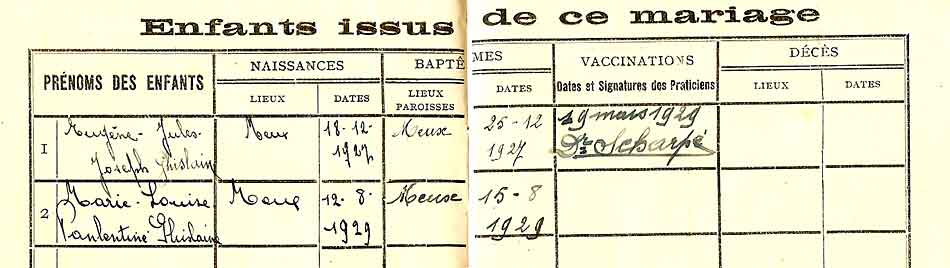 Enfants issus de ce mariage
PRÉNOMS DES ENFANTS
NAISSANCES
LIEUX
DATES
BAPTÊMES
LIEUX PAROISSES
DATES
VACCINATIONS
Dates et Signatures des Praticiens
DÉCÈS
LIEUX
DATES
1
Eugène-Jules-
Joseph Ghislain
Meux
18-12-
1927
Meuse
25-12
1927
19 mars 1929
Dr Scharpé
2
Marie-Louise
Ghislaine
Meux
12-8-
1929
Meuse
15-8
1929